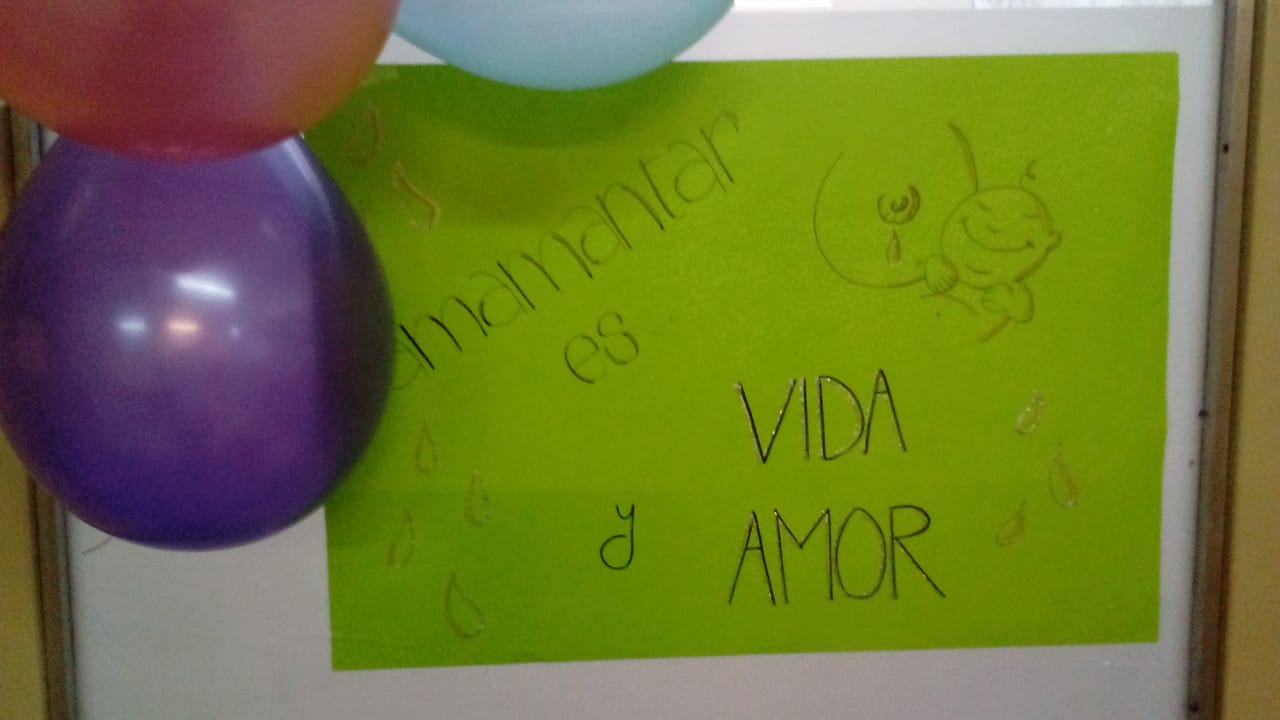 amamantar
es
VIDA
y AMOR